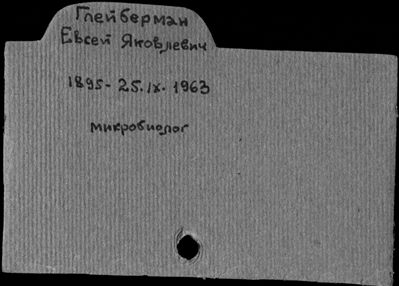 Глейберман
Евсей Яковлевич
1895 - 25.IX.1963
микробиолог